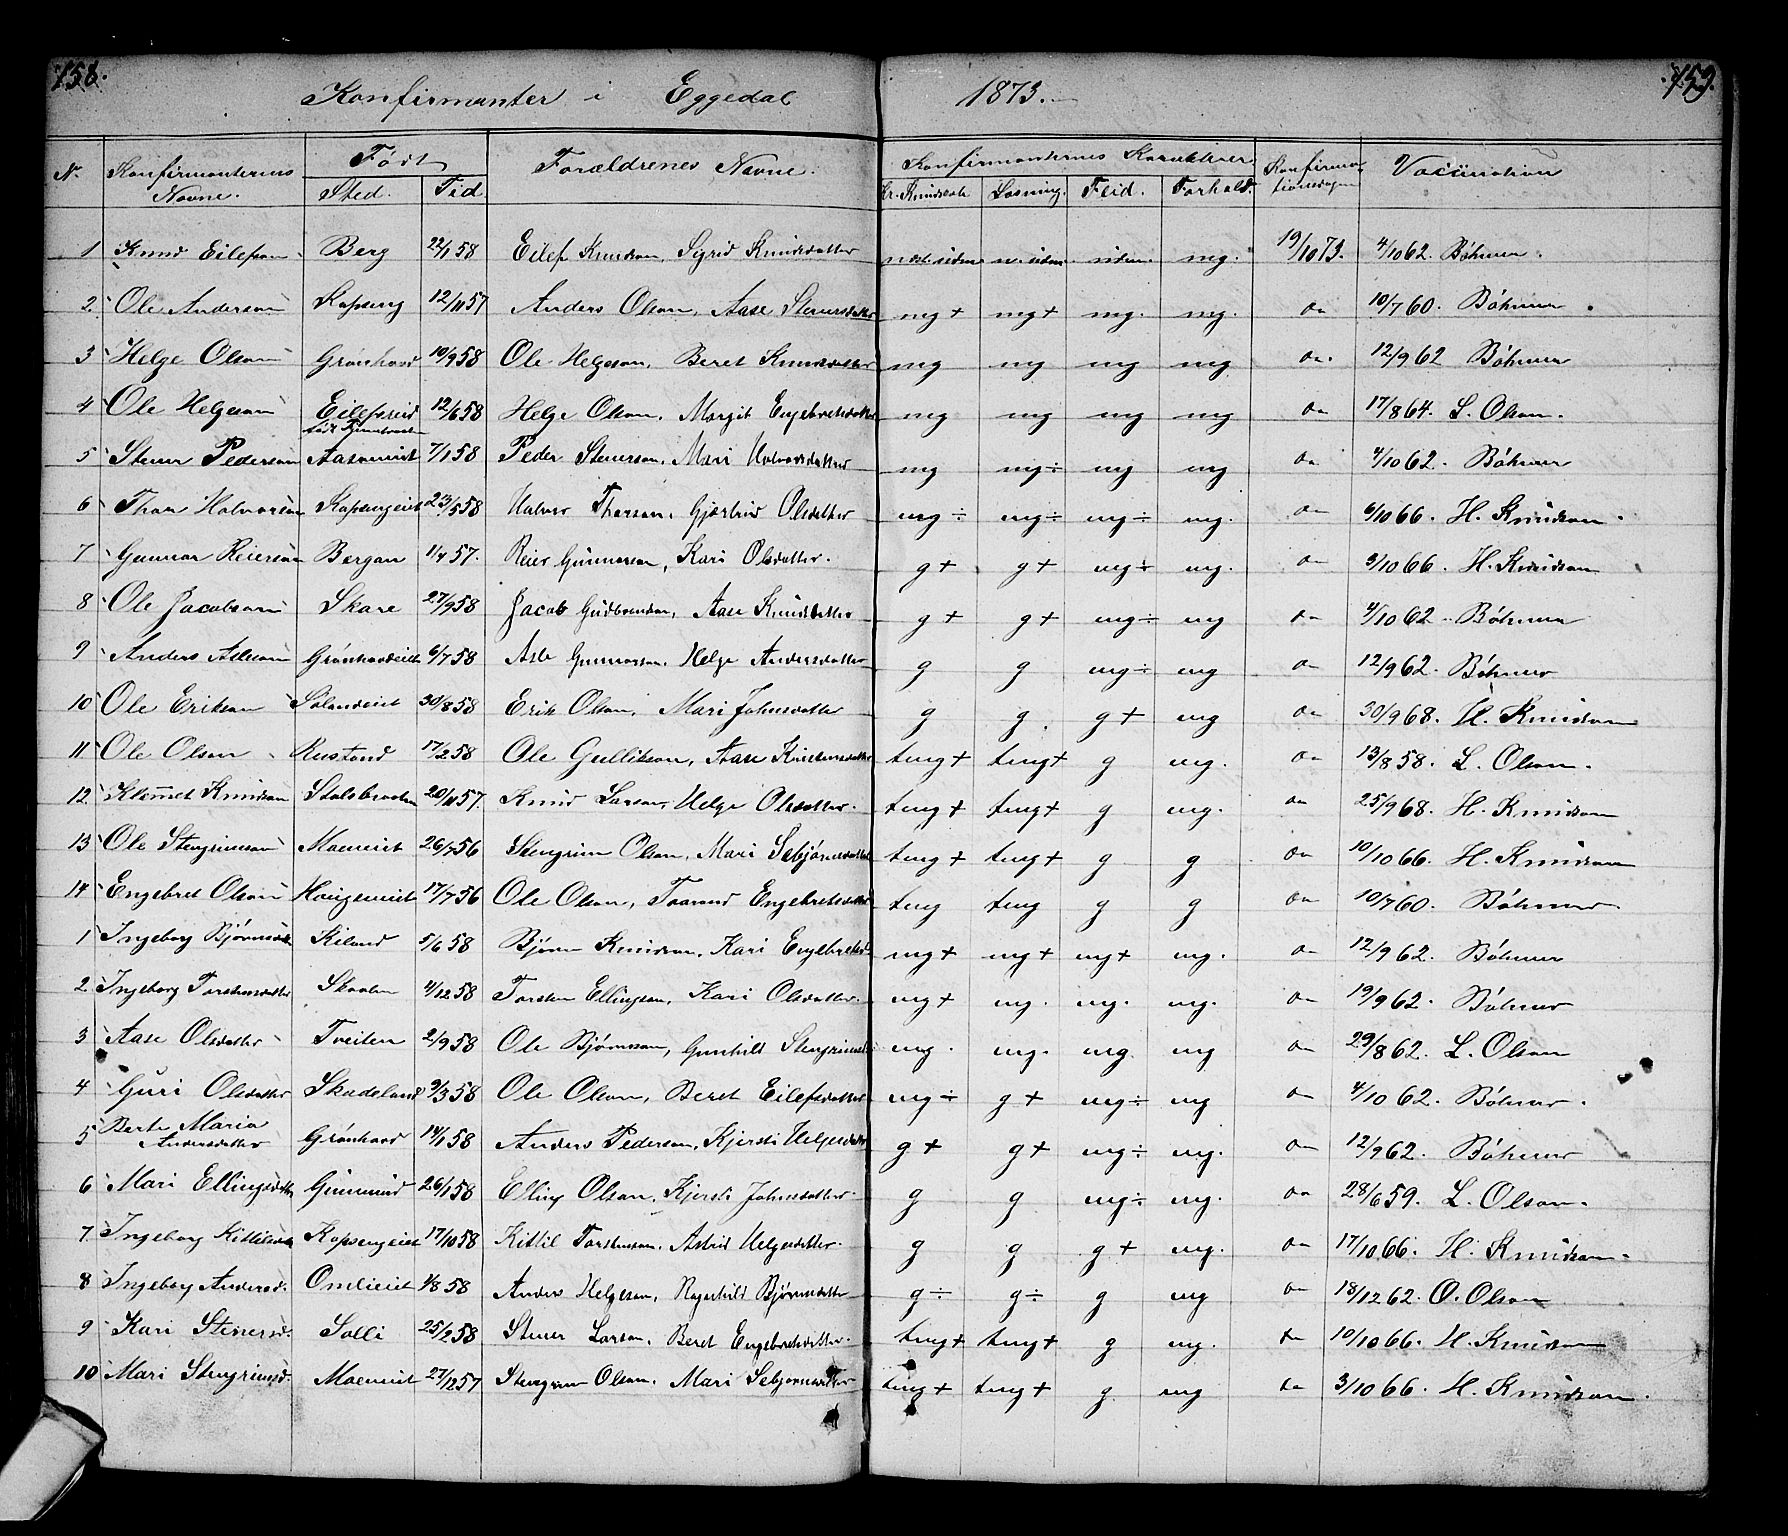 158.
Konfirmanter i Eggedal 1873.
159.
N. Konfirmanternes Navne. Født Sted. Tid. Forældrenes Navne. Konfirmanternes Karakterer Kr. Kundskab Læsning. Flid. Forhold. Konfirmationsdagen Vaccination
1 Knud Eilefsen Berg 22/1 58 Eilef Knudsen, Sigrid Knudsdatter mg. 19/10 73. 4/10 62. Böhmer.
2. Ole Andersen Kopseng 12/11 57 Anders Olsen, Aase Stenersdatter mg + mg + mg. mg. do 10/7 60. Böhmer
3 Helge Olsen Grönhovd 10/9 58 Ole Helgesen, Beret Knudsdatter mg mg mg mg do. 12/9 62 Böhmer
4 Ole Helgesen Eilefseid 12/6 58 Helge Olsen, Margit Engebretsdatter mg mg mg mg do 17/8 64. L. Olsen.
5 Stener Pedersen Aasaneiet 7/1 58 Peder Stenersen, Mari Halvorsdatter mg mg ÷ mg mg do 4/10 62. Böhmer
6 Thor Halvorsen Kopsengeiet 23/5 58 Halvor Thorsen, Gjertrud Olsdatter mg ÷ mg ÷ mg ÷ mg. do 6/10 66. H. Knudsen.
7 Gunnar Reiersen Bergan 11/4 57. Reier Gunnarsen, Kari Olsdatter. g + g + mg ÷ mg. do 3/10 66. H. Knudsen
8 Ole Jacobsen Skare 27/9 58 Jacob Gudbrandsen, Aase Knudsdatter g + g + mg ÷ mg do 4/10 62. Böhmer
9 Anders Aslesen Grönhovdeiet 6/7 58 Asle Gunnarsen, Helge Andersdatter g g mg ÷ mg do 12/9 62. Böhmer
10 Ole Eriksen Sölandeiet 30/8 58 Erik Olsen, Mari Johnsdatter g g. g + mg do 30/9 68. H. Knudsen
11 Ole Olsen Rustand 17/2 58 Ole Gulliksen, Aase Kristensdatter temg + temg + g mg. do 13/8 58. L. Olsen.
12 Klemet Knudsen Stalsbraaten 20/11 57. Knud Larsen, Helge Olsdatter. temg + temg + g mg. do 25/9 68. H. Knudsen
13 Ole Stengrimsen Moeneiet 26/7 56 Stengrim Olsen, Mari Sebjörnsdatter temg + temg + g g do 10/10 66. H. Knudsen
14 Engebret Olsen Haugeneiet 17/7 56 Ole Olsen, Taarand Engebretsdatter temg temg g g do 10/7 60. Böhmer
1 Ingeborg Björnsd. Kiland 5/6 58 Björn Knudsen, Kari Engebretsd. mg + mg + mg + mg. do 12/9 62. Böhmer
2 Ingeborg Torstensdatter Skaalen 4/12 58 Torsten Ellingsen, Kari Olsdatter. mg + mg. mg. mg. do 19/9 62. Böhmer
3 Aase Olsdatter Tveiten 2/9 58 Ole Björnsen, Gunhild Stengrimsd. mg. mg. mg mg do 29/8 62. L. Olsen
4 Guri Olsdatter Skadeland 9/3 58 Ole Olsen, Beret Eilefsdatter mg ÷ g + mg ÷ mg do 4/10 62. Böhmer.
5 Berte Maria Andersdatter Grönhovd 14/1 58 Anders Pedersen, Kjersti Helgesdatter g + g + mg ÷ mg. do 12/9 62. Böhmer
6 Mari Ellingsdatter 26/1 58 Elling Olsen, Kjersti Johnsdatter. g g mg ÷ mg. do 28/6 59. L. Olsen.
7 Ingeborg Kittilsd. Kopsengeiet 17/10 58 Kittil Torstensen, Astrid Helgesdatter. g g g + mg. do 17/10 66. H. Knudsen.
8 Ingeborg Andersd. Omlieiet 1/8 58 Anders Helgesen, Ragnhild Björnsdatter g ÷ g ÷ g mg do 18/12 62. O. Olsen
9 Kari Stenersd. Solli 25/2 58 Stener Larsen, Beret Engebretsdatter. temg + temg + g mg. do 10/10 66. H. Knudsen
10 Mari Stengrimsd. Moeneiet 27/12 57 Stengrim Olsen, Mari Sebjørnsdatter temg + temg + g mg do 3/10 66. H. Knudsen.